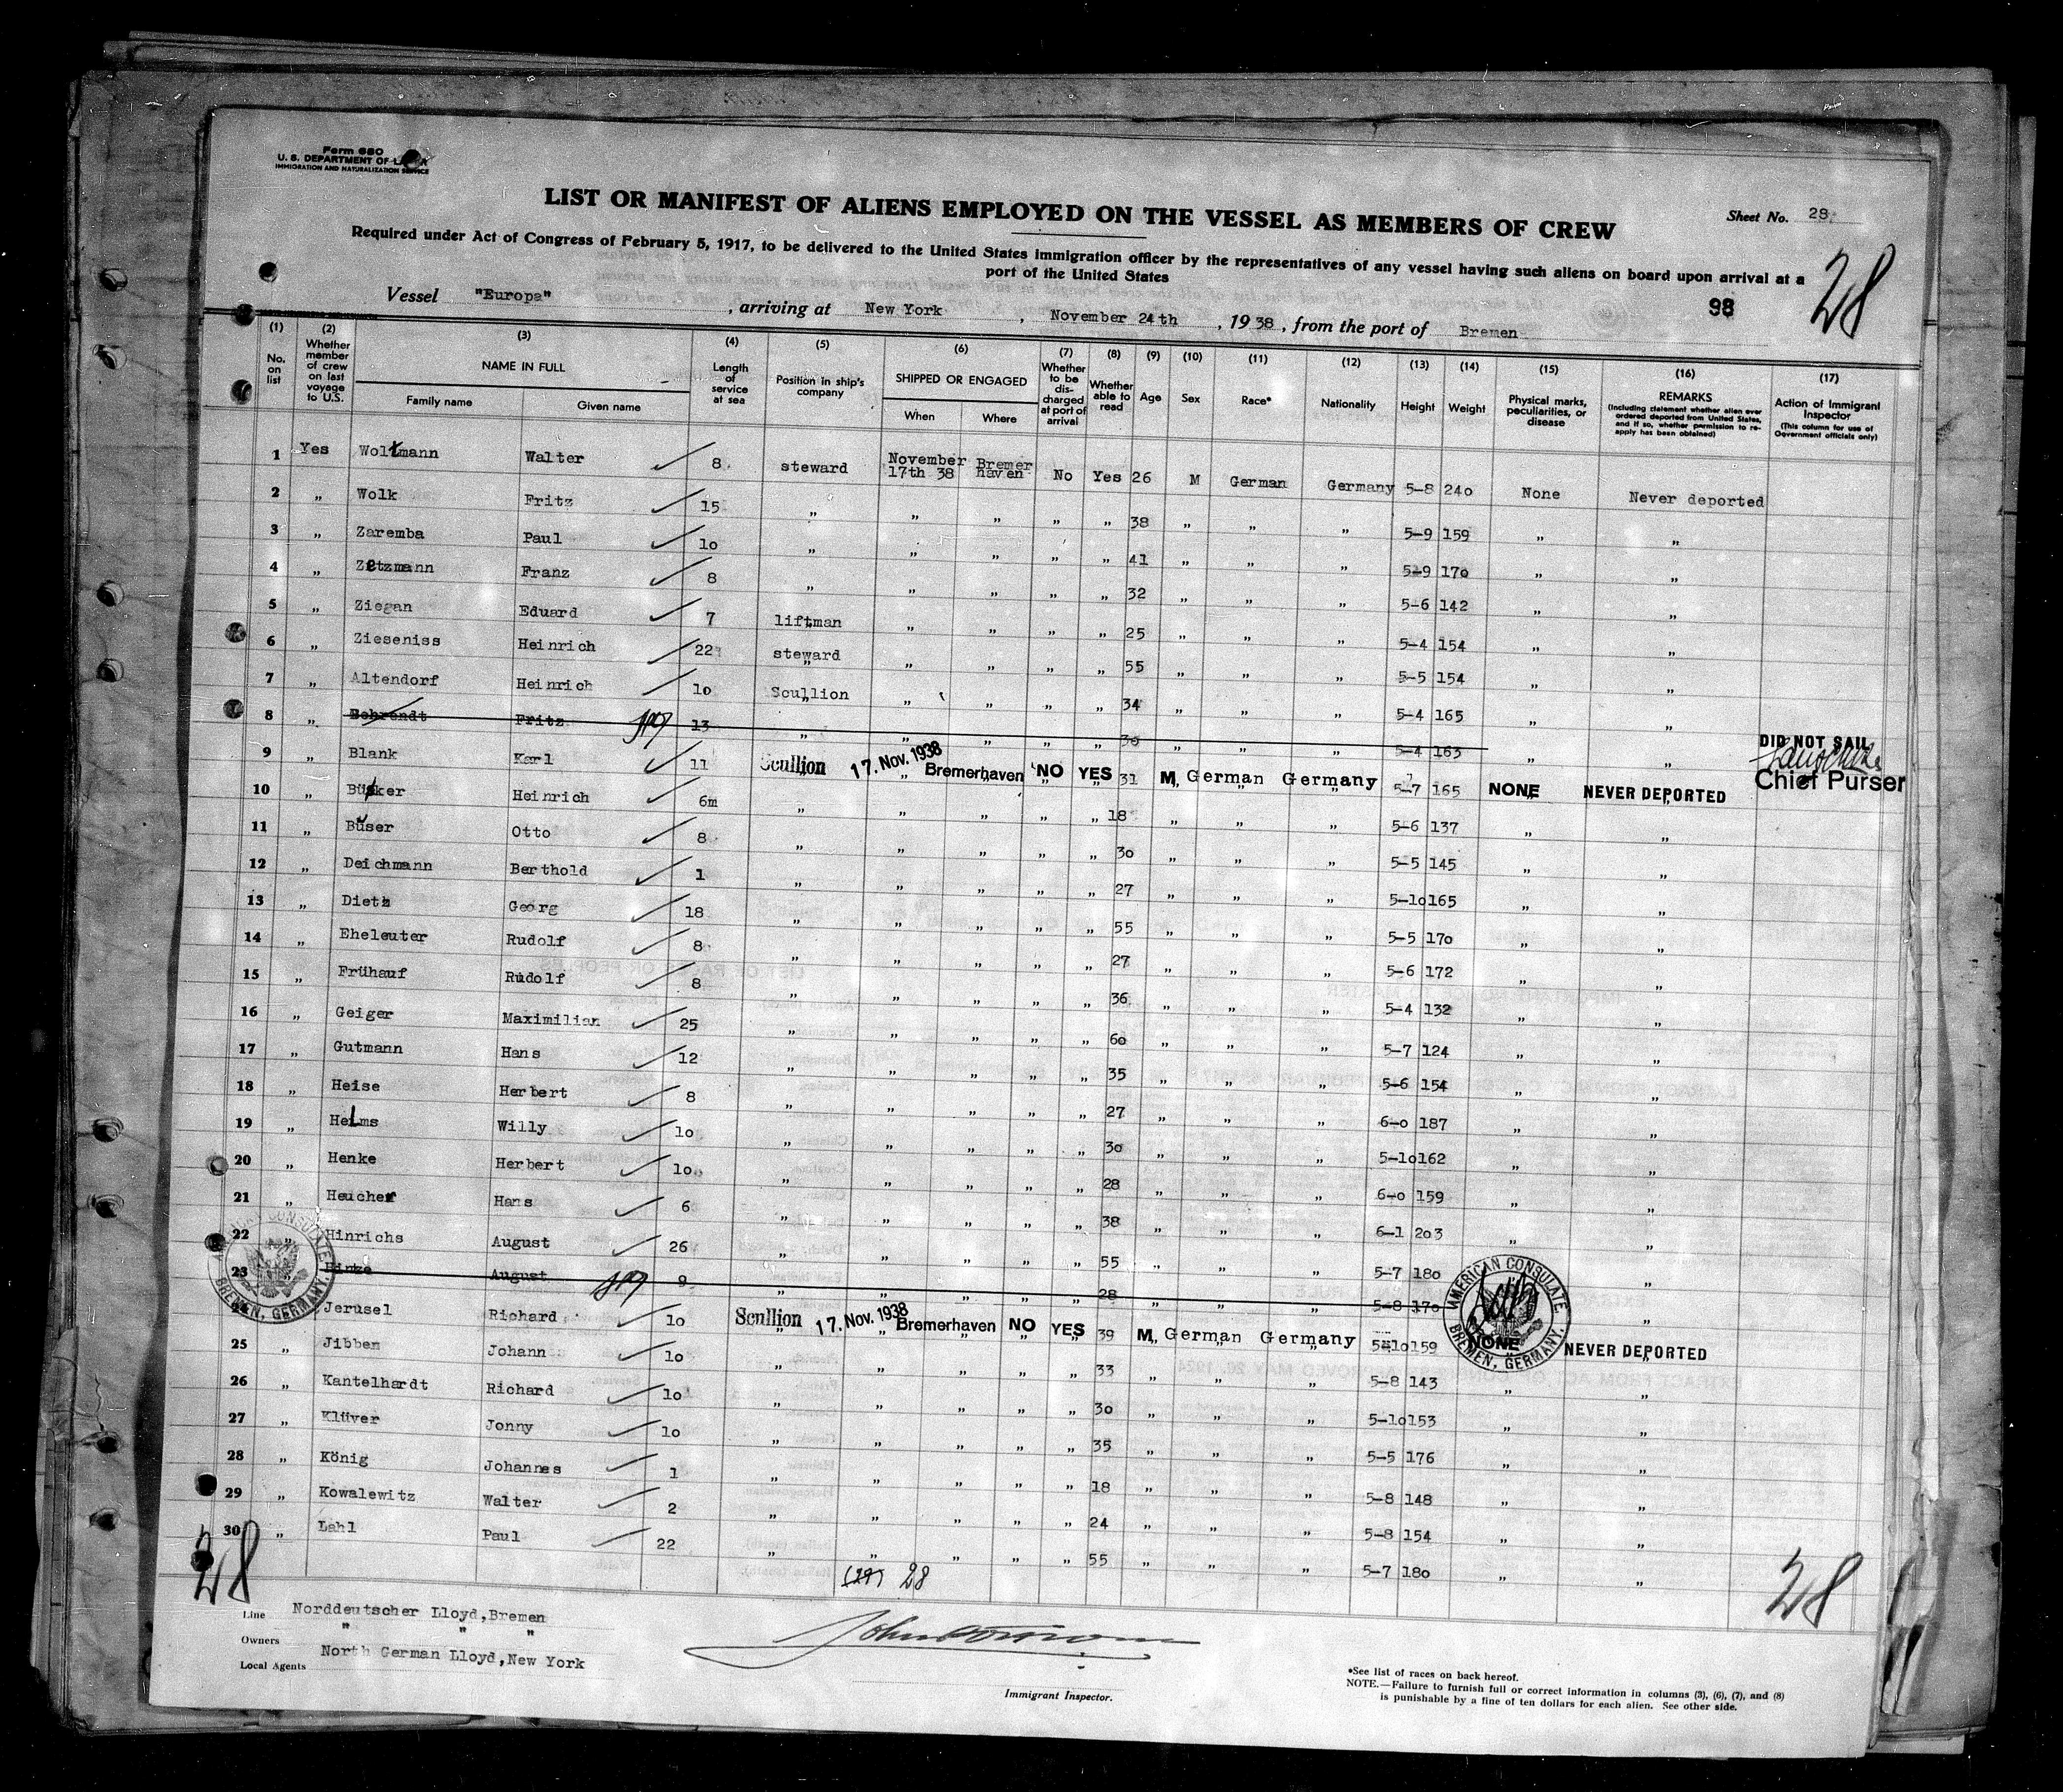 Form 680
U. S. DEPARTMENT OF
IMMIGRATION AND NATURALIZATION SERVICE
LIST OR MANIFEST OF ALIENS EMPLOYED ON THE VESSEL AS MEMBERS OF CREW
Sheet No. 28
Required under Act of Congress of February 5, 1917, to be delivered to the United States immigration officer by the representatives of any vessel having such aliens on board upon arrival at a
port of the United States
98
28
Vessel "Europa" , arriving at New York , November 24th , 1938 , from the port of Bremen
(1) No. on list
(2) Whether member of crew on last voyage to U.S.
(3) NAME IN FULL Family name Given name
(4) Length of service at sea
(5) Position in ship's company
(6) SHIPPED OR ENGAGED When Where
(7) Whether to be discharged at port of arrival
(8) Whether able to read
(9) Age
(10) Sex
(11) Race*
(12) Nationality
(13) Height
(14) Weight
(15) Physical marks, peculiarities, or disease
(16) REMARKS (Including statement whether alien ever ordered deported from United States, and if so, whether permission to re-apply has been obtained)
(17) Action of Immigrant Inspector (This column for use of Government officials only)
1 Yes Woltmann Walter 8 steward November 17th 38 Bremerhaven No Yes 26 M German Germany 5-8 240 None Never deported
2 „ Wolk Fritz 15 „ „ „ „ „ 38 „ „ „ 5-9 159 „ „
3 „ Zaremba Paul 10 „ „ „ „ „ 41 „ „ „ 5-9 170 „ „
4 „ Zetzmann Franz 8 „ „ „ „ „ 32 „ „ „ 5-6 142 „ „
5 „ Ziegan Eduard 7 liftman „ „ „ „ 25 „ „ „ 5-4 154 „ „
6 „ Zieseniss Heinrich 22 steward „ „ „ „ 55 „ „ „ 5-5 154 „ „
7 „ Altendorf Heinrich 10 Scullion „ „ „ „ 34 „ „ „ 5-4 165 „ „
8 „ Behrendt Fritz 13 „ „ „ „ „ 30 „ „ „ 5-4 163 „ „ DID NOT SAIL
9 „ Blank Karl 11 Scullion 17. Nov. 1938 Bremerhaven NO YES 31 M German Germany 5-7 165 NONE NEVER DEPORTED Chief Purser
10 „ Büsker Heinrich 6m „ „ „ „ „ 18 „ „ „ 5-6 137 „ „
11 „ Büser Otto 8 „ „ „ „ „ 30 „ „ „ 5-5 145 „ „
12 „ Deichmann Berthold 1 „ „ „ „ „ 27 „ „ „ 5-10 165 „ „
13 „ Dietz Georg 18 „ „ „ „ „ 55 „ „ „ 5-5 170 „ „
14 „ Eheleuter Rudolf 8 „ „ „ „ „ 27 „ „ „ 5-6 172 „ „
15 „ Frühauf Rudolf 8 „ „ „ „ „ 36 „ „ „ 5-4 132 „ „
16 „ Geiger Maximilian 25 „ „ „ „ „ 60 „ „ „ 5-7 124 „ „
17 „ Gutmann Hans 12 „ „ „ „ „ 35 „ „ „ 5-6 154 „ „
18 „ Heise Herbert 8 „ „ „ „ „ 27 „ „ „ 6-0 187 „ „
19 „ Helms Willy 10 „ „ „ „ „ 30 „ „ „ 5-10 162 „ „
20 „ Henke Herbert 10 „ „ „ „ „ 28 „ „ „ 6-0 159 „ „
21 „ Heucher Hans 6 „ „ „ „ „ 38 „ „ „ 6-1 203 „ „
22 „ Hinrichs August 26 „ „ „ „ „ 55 „ „ „ 5-7 180 „ „
23 Hinze August 9 „ „ „ „ „ 28 „ „ „ 5-8 170 „
24 „ Jerusel Richard 10 Scullion 17. Nov. 1938 Bremerhaven NO YES 39 M German Germany 5-10 159 NONE NEVER DEPORTED
25 „ Jibben Johann 10 „ „ „ „ „ 33 „ „ „ 5-8 143 „ „
26 „ Kantelhardt Richard 10 „ „ „ „ „ 30 „ „ „ 5-10 153 „ „
27 „ Klüver Jonny 10 „ „ „ „ „ 35 „ „ „ 5-5 176 „ „
28 „ König Johannes 1 „ „ „ „ „ 18 „ „ „ 5-8 148 „ „
29 „ Kowalewitz Walter 2 „ „ „ „ „ 24 „ „ „ 5-8 154 „ „
30 „ Lahl Paul 22 „ „ „ „ „ 55 „ „ „ 5-7 180 „ „
AMERICAN CONSULATE BREMEN, GERMANY.
AMERICAN CONSULATE BREMEN, GERMANY.
28
(29) 28
28
Line Norddeutscher Lloyd,Bremen
Owners " " "
Local Agents North German Lloyd,New York
Immigrant Inspector.
*See list of races on back hereof.
NOTE.—Failure to furnish full or correct information in columns (3), (6), (7), and (8)
is punishable by a fine of ten dollars for each alien. See other side.